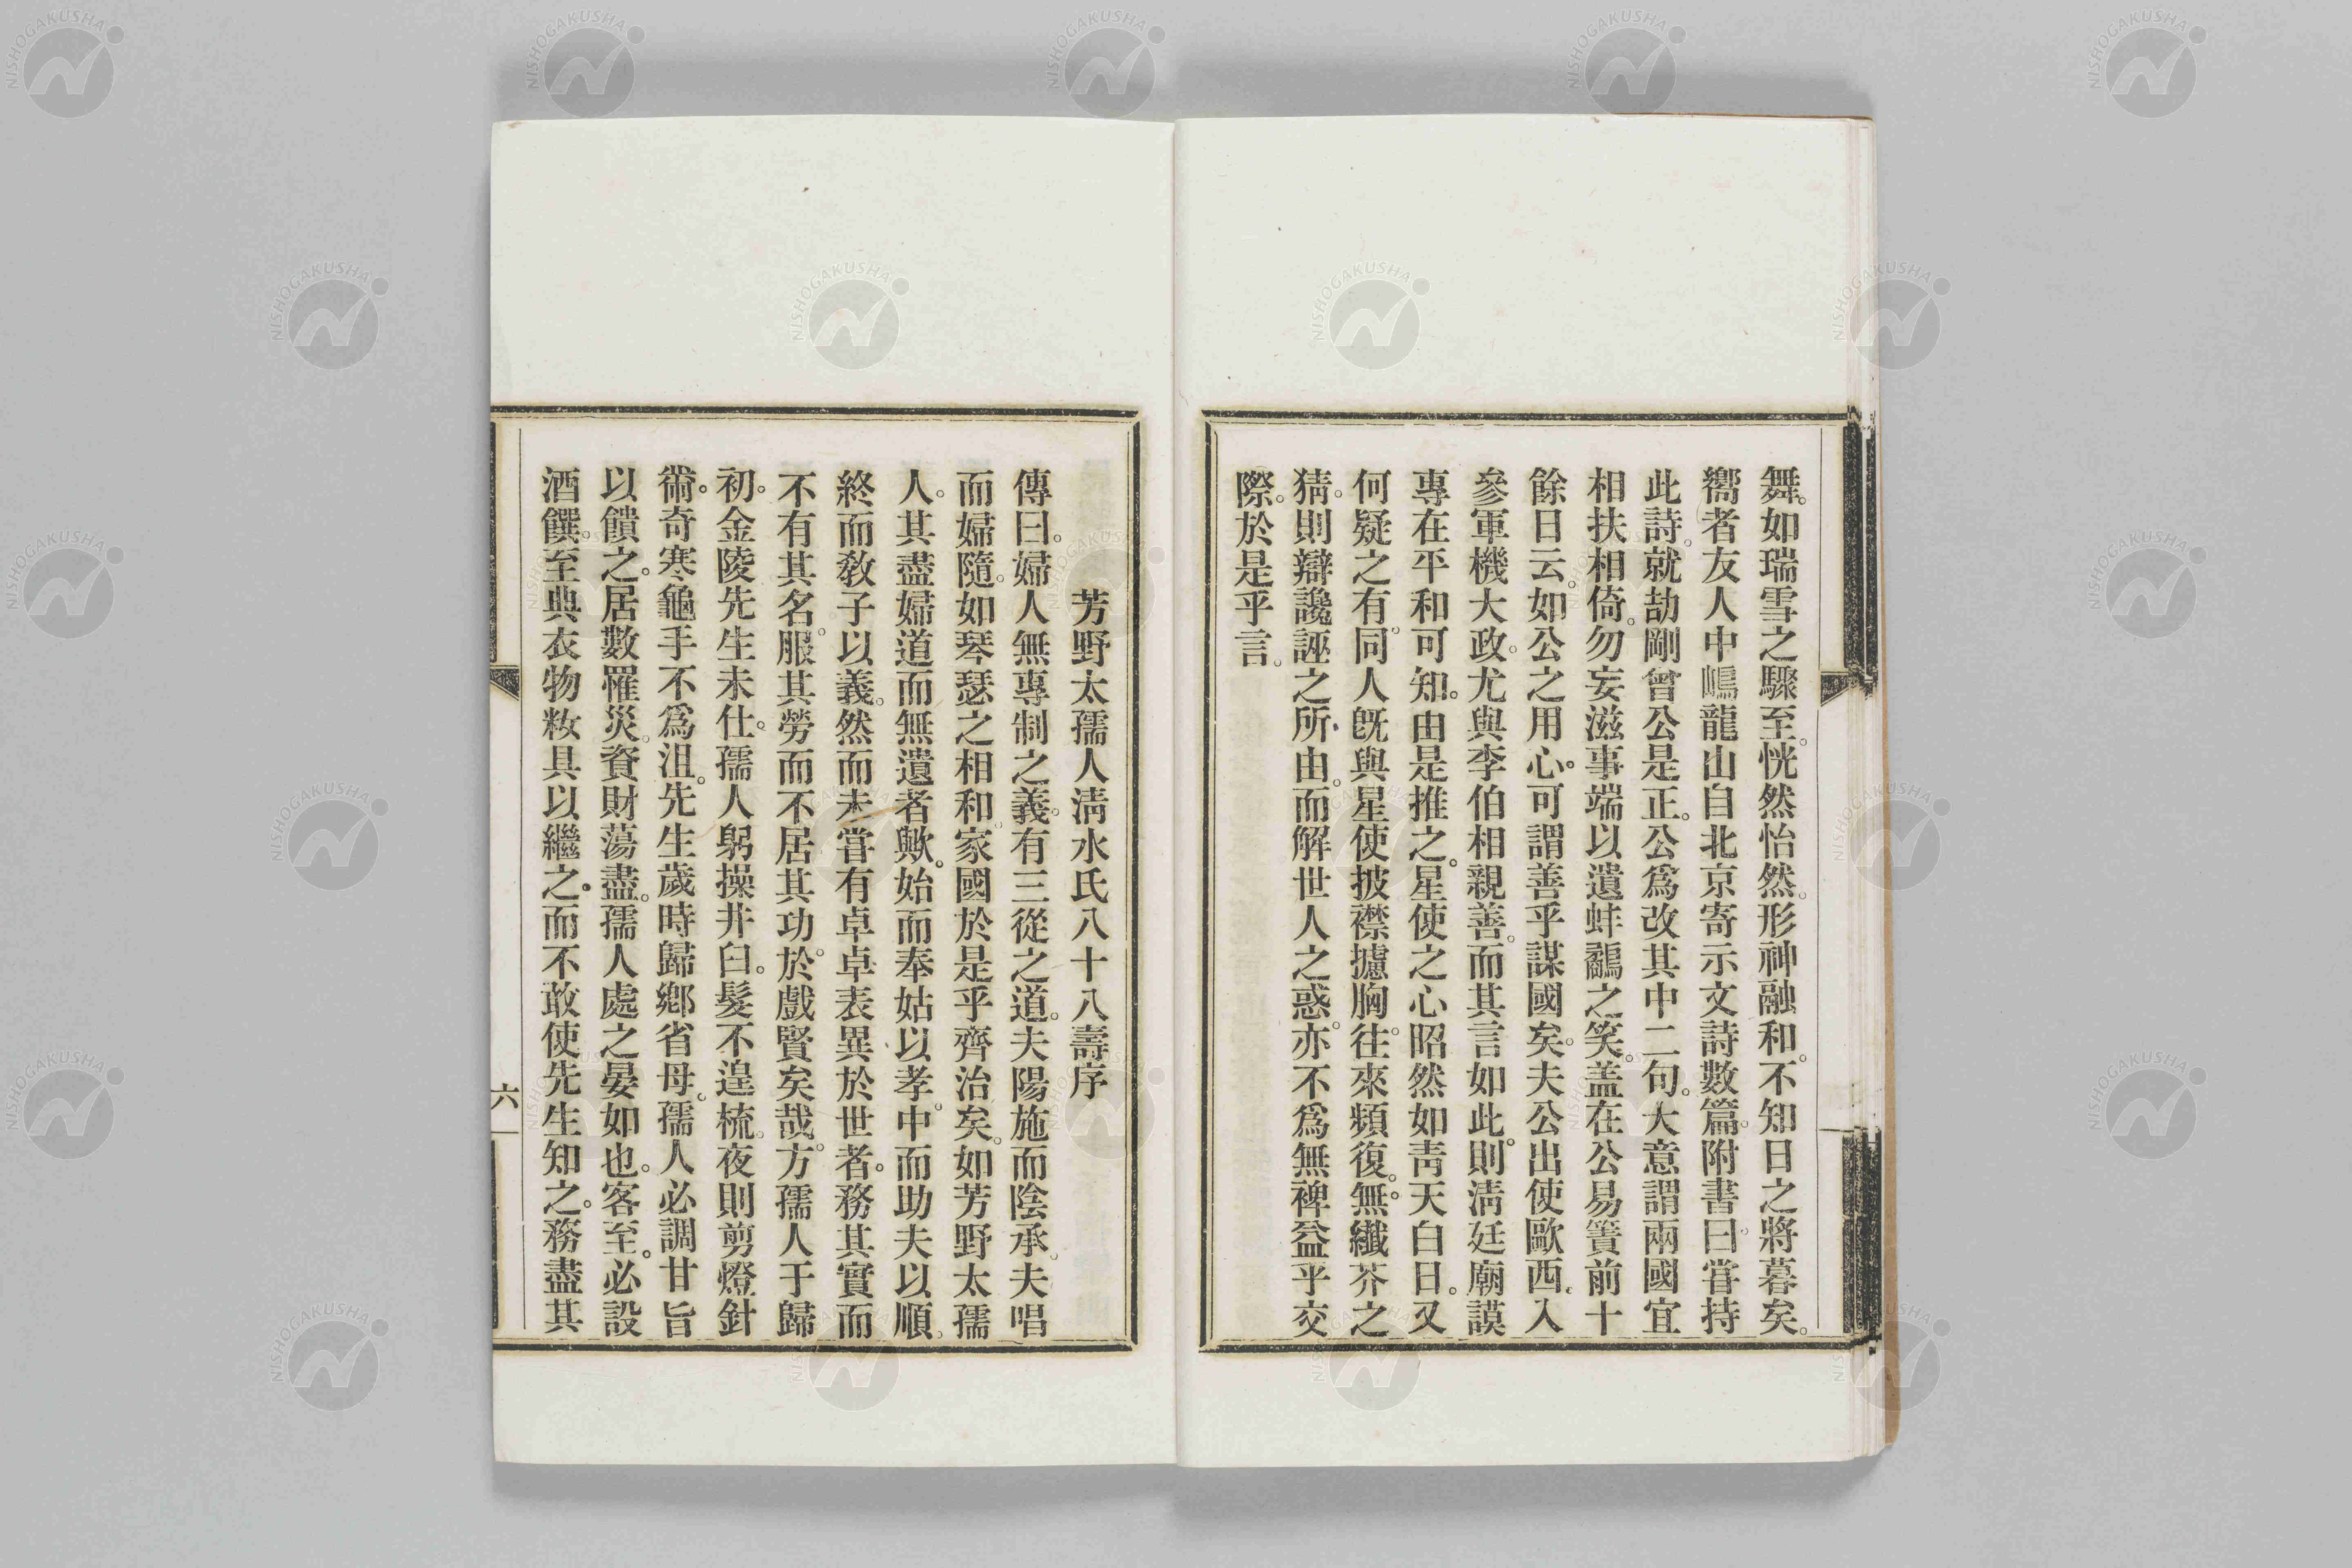 舞。如瑞雪之驟至。恍然怡然。形神融和。不知日之將暮矣。
嚮者友人中嶋龍山自北京寄示文詩數篇。附書曰。嘗持
此詩。就劼剛曾公是正。公爲改其中二句。大意謂兩國宜
相扶相倚。勿妄滋事端以遺蚌鷸之笑。盖在公易簀前十
餘日云。如公之用心。可謂善乎謀國矣。夫公出使歐西。入
參軍機大政。尤與李伯相親善。而其言如此。則淸廷廟謨
專在平和可知。由是推之。星使之心昭然如靑天白日。又
何疑之有。同人旣與星使披襟攄胸。往來頻復。無纎芥之
猜。則辯讒誣之所由。而解世人之惑。亦不爲無裨益乎交
際。於是乎言。
芳野太孺人淸水氏八十八壽序
傳曰。婦人無專制之義。有三從之道。夫陽施而陰承。夫唱
而婦隨。如琴瑟之相和。家國於是乎齊治矣。如芳野太孺
人。其盡婦道而無遺者歟。始而奉姑以孝。中而助夫以順。
終而敎子以義。然而未嘗有卓卓表異於世者。務其實而
不有其名。服其勞而不居其功。於戲賢矣哉。方孺人于歸
初。金陵先生未仕。孺人躬操井臼。髮不遑梳。夜則剪燈針
黹。奇寒龜手不爲沮。先生歲時歸鄕省母。孺人必調甘旨
以饋之。居數罹災。資財蕩盡。孺人處之晏如也。客至。必設
酒饌。至典衣物粧具以繼之。而不敢使先生知之。務盡其
六
NISHOGAKUSHA